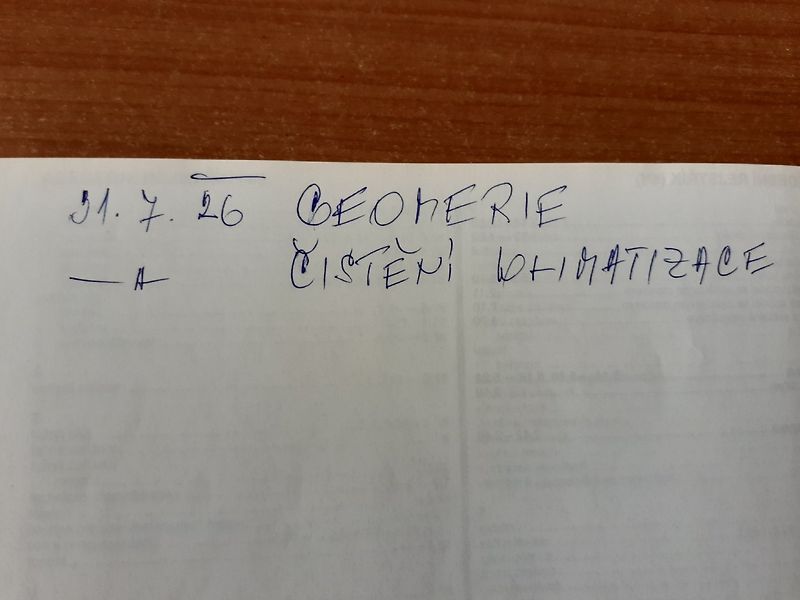 31. 7. 26 GEOMERIE
—〃— ČISTĚNÍ KLIMATIZACE